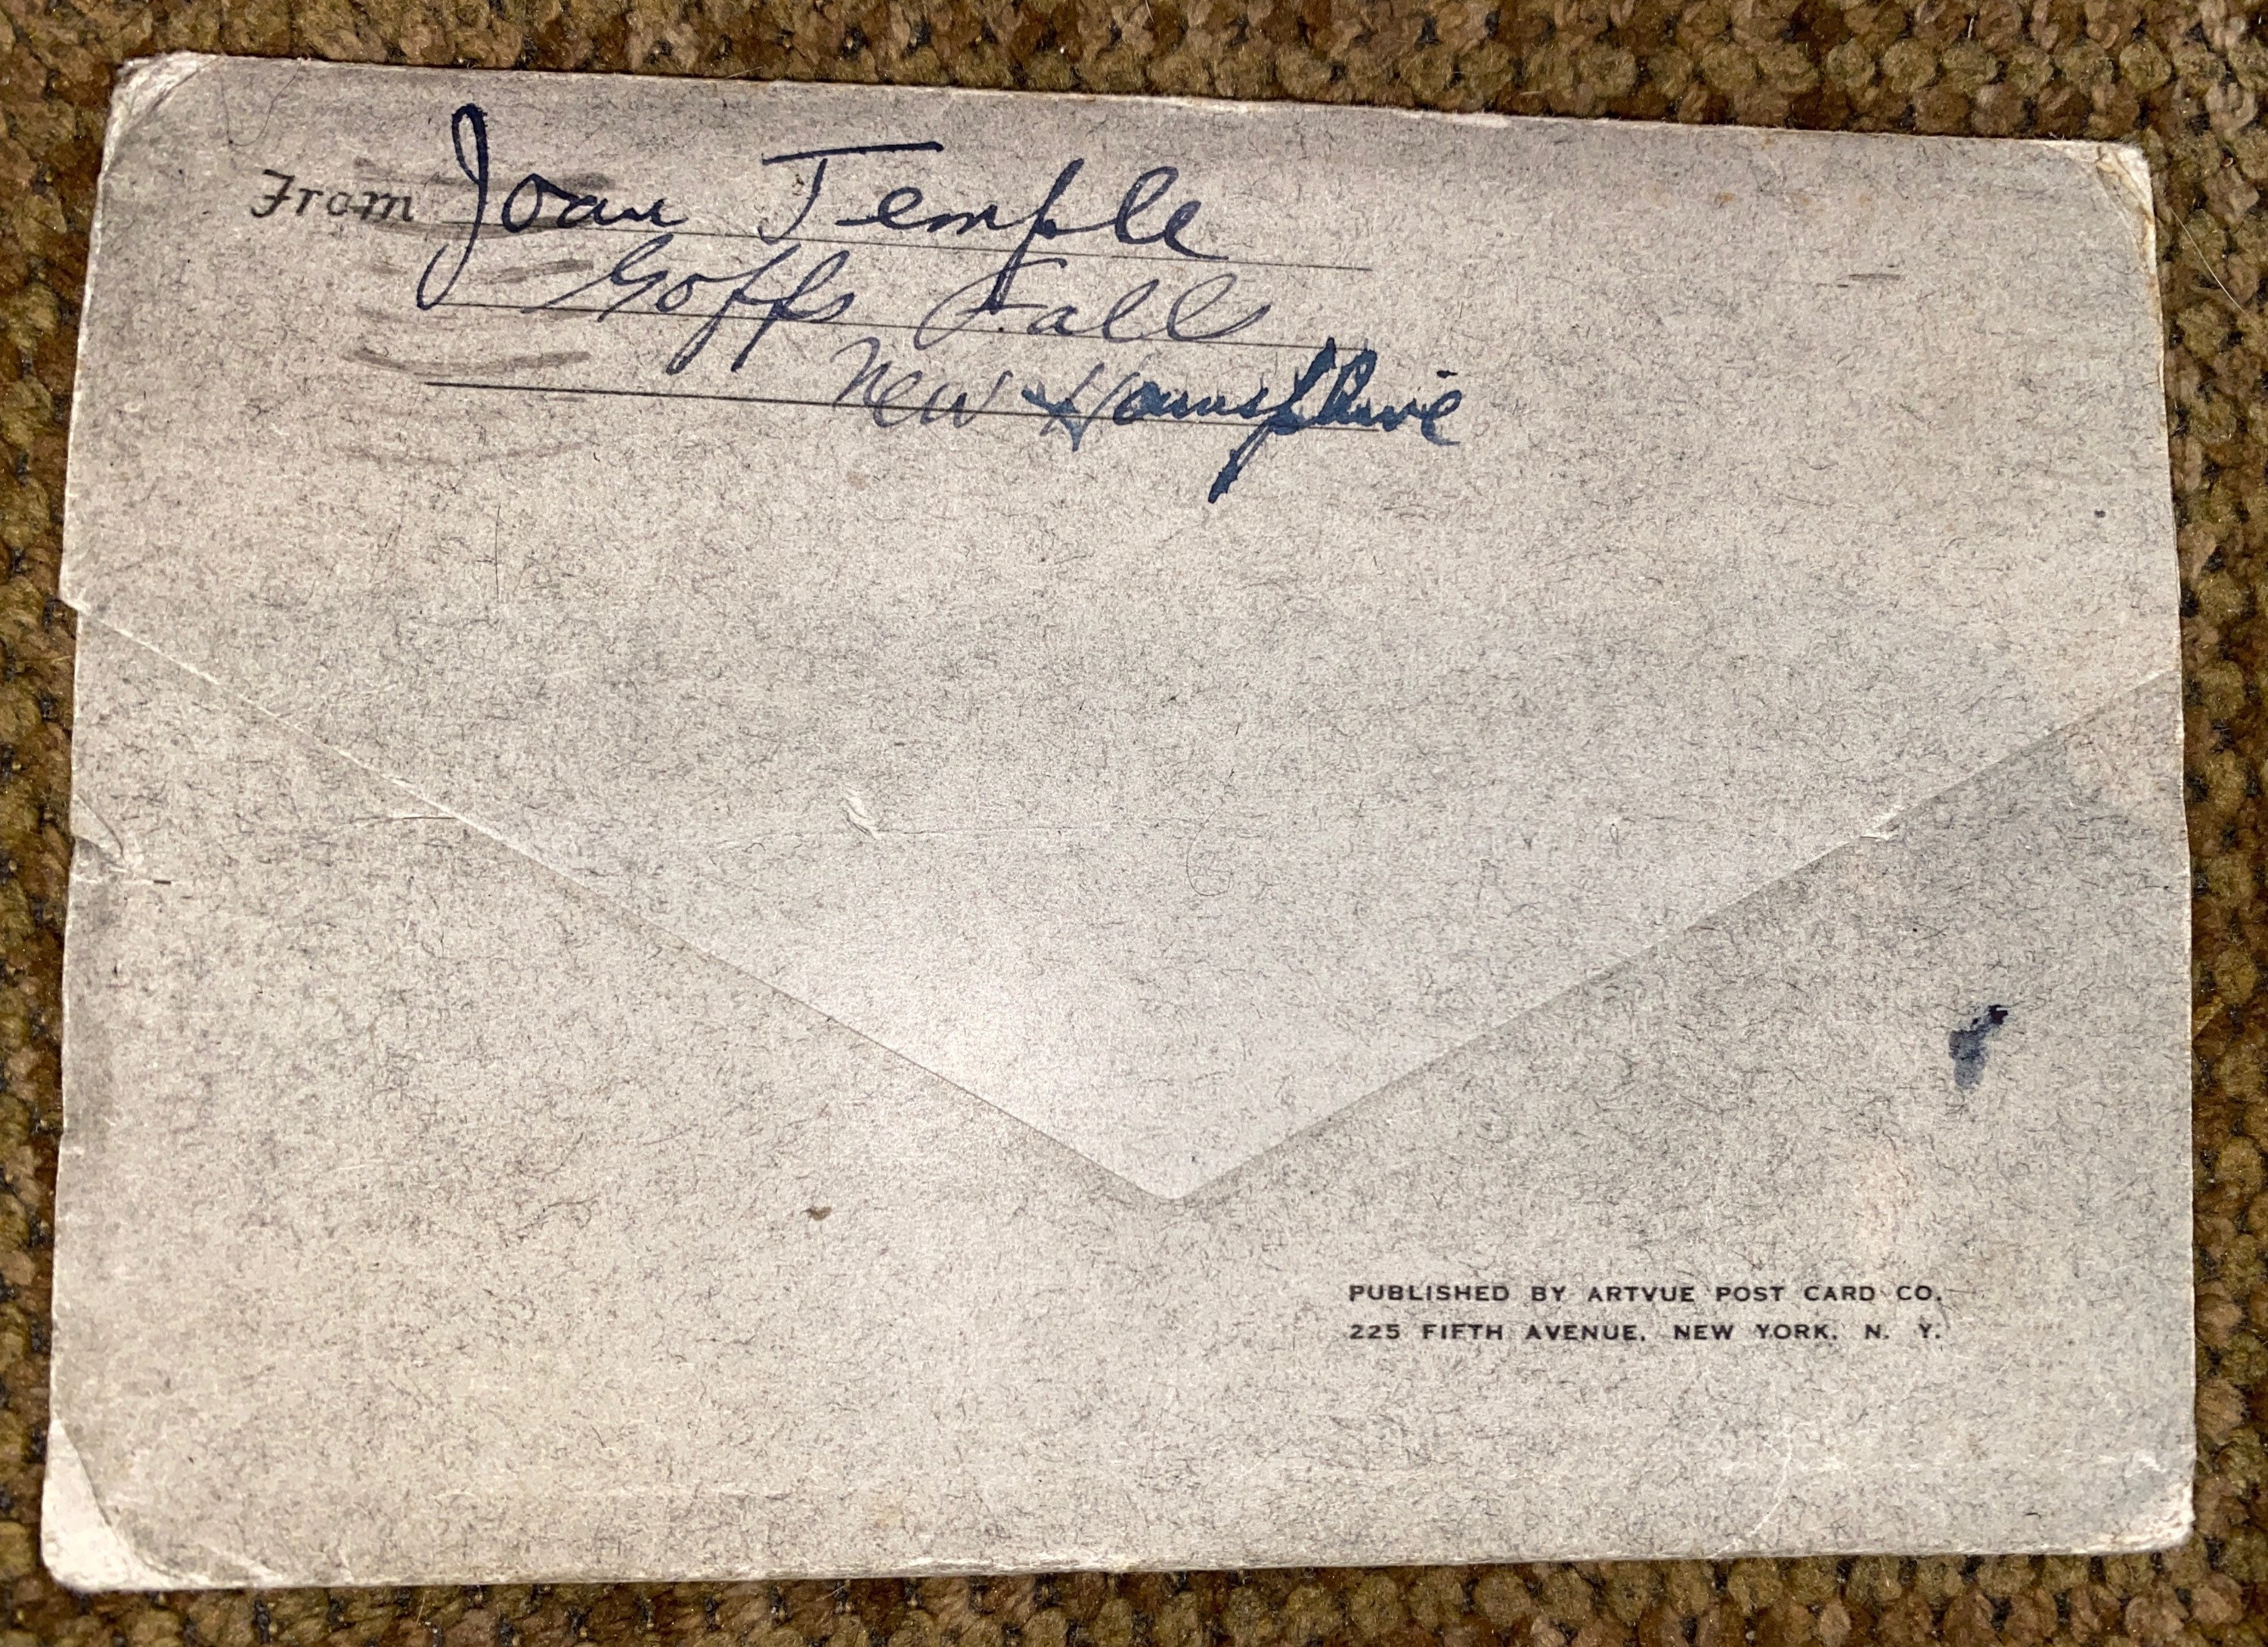 From Joan Temple
Goffs Falls
New Hampshire
PUBLISHED BY ARTVUE POST CARD CO.
225 FIFTH AVENUE, NEW YORK, N. Y.